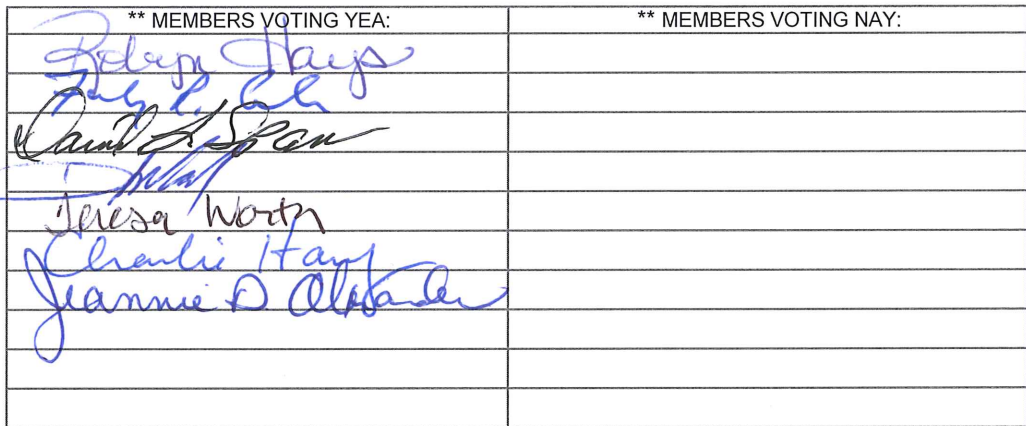 ** MEMBERS VOTING YEA: ** MEMBERS VOTING NAY:
Robyn Hays
David L. Spean
Teresa Worth
Charlie Hay
Jeannie D Alexander